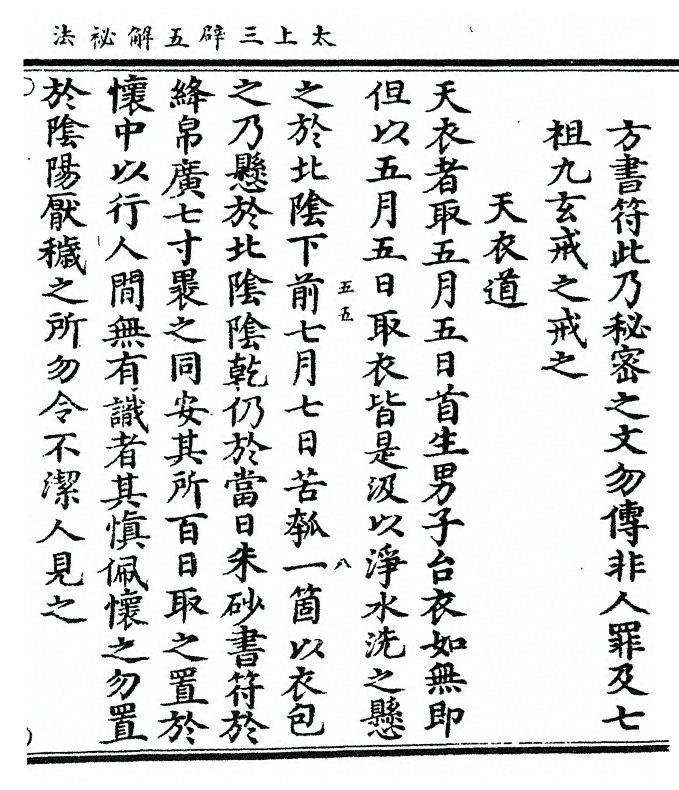 太上三辟五解祕法
方書符此乃秘密之文勿傳非人罪及七
祖九玄戒之戒之
天衣道
天衣者取五月五日首生男子台衣如無即
但以五月五日取衣皆是汲以淨水洗之懸
五五
八
之於北陰下前七月七日苦瓠一箇以衣包
之乃懸於北陰陰乾仍於當日朱砂書符於
絳帛廣七寸褁之同安其所百日取之置於
懷中以行人間無有識者其慎佩懷之勿置
於陰陽厭穢之所勿令不潔人見之